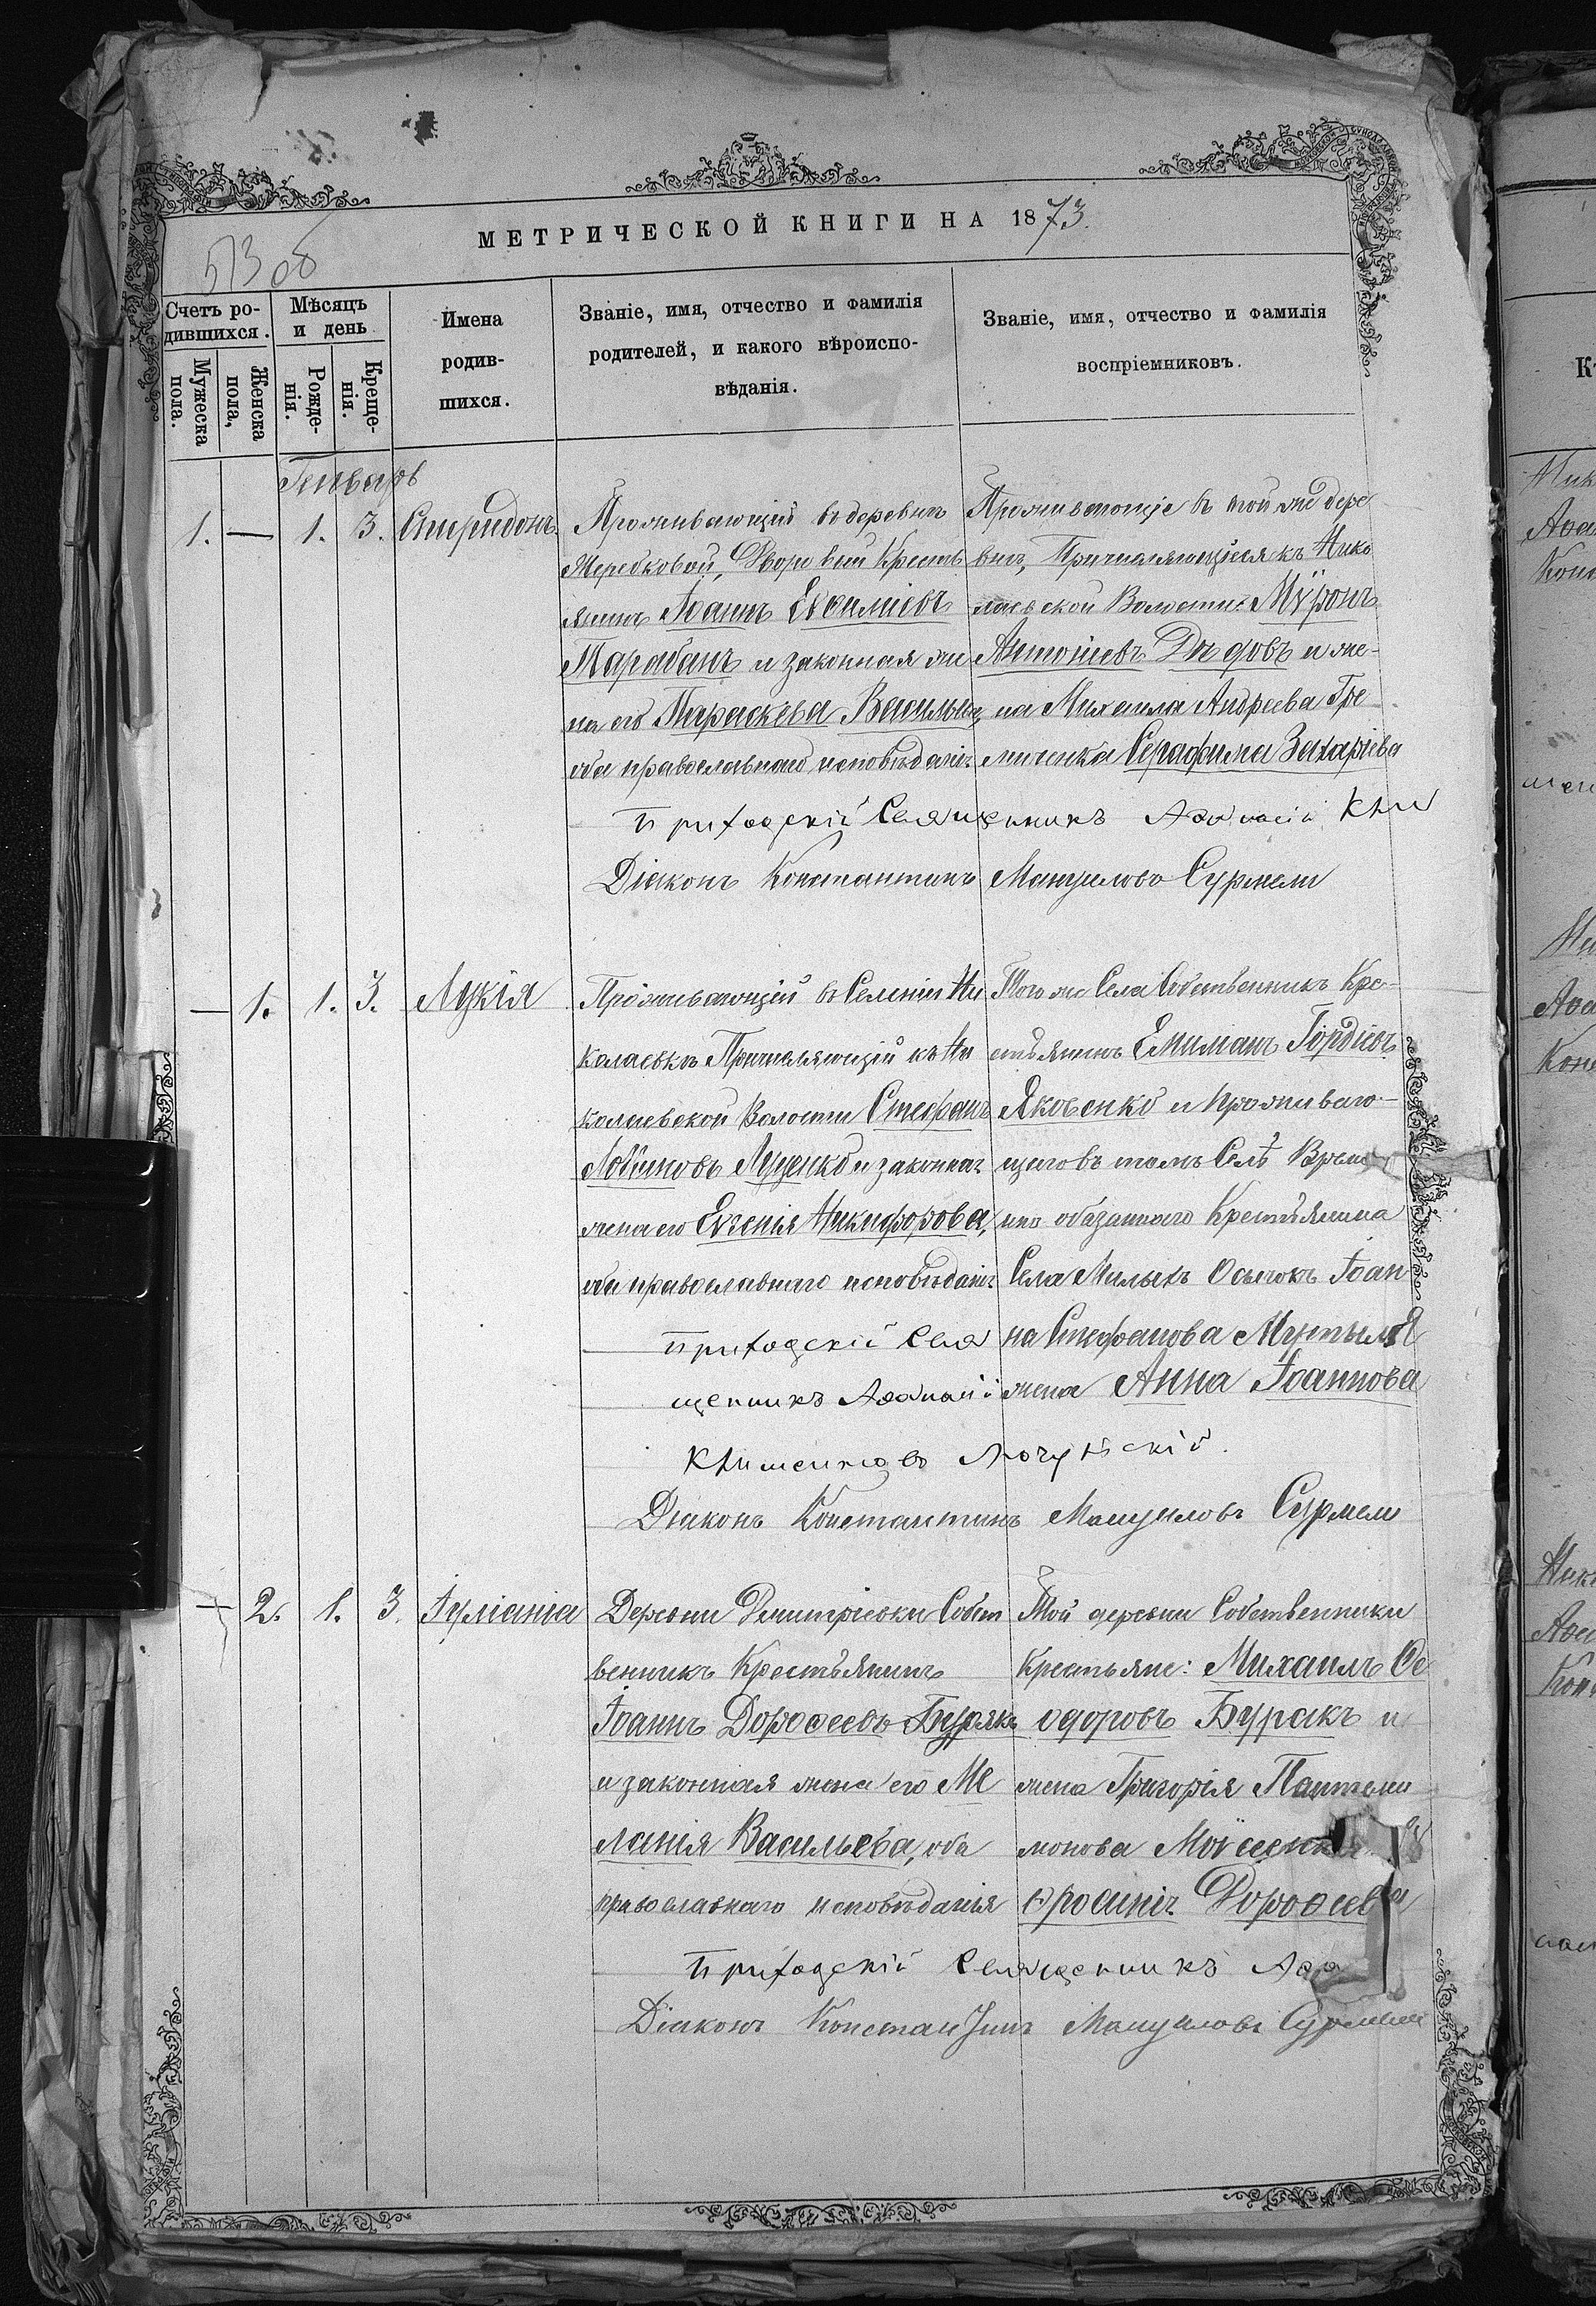 МЕТРИЧЕСКОЙ КНИГИ НА 1873.
513 об
Счетъ ро-
дившихся.
Мужеска
пола.
Женска
пола,
Мѣсяцъ
и день
Рожде-
нія.
Креще-
нія.
Имена
родив-
шихся.
Званіе, имя, отчество и фамилія
родителей, и какого вѣроиспо-
вѣданія.
Званіе, имя, отчество и фамилія
воспріемниковъ.
Генварь
1. — 1. 3. Спиридонъ.
Проживающій въ деревнѣ
Дворовый Кресть
янинъ Іоаннъ Евѳиміевъ
Тарабанъ и законная же
на его Параскева Васильева,
оба православнаго исповѣданія.
Проживающіе въ той же дере
внѣ, Причисляющійся къ Нико
лаевской Волости: Мѵронъ
Антоніевъ Дѣдовъ и же-
на Михаила Андреева Гре
миченка Серафима Захаріева
Приходскій Священникъ Аѳанасій Кли
Діаконъ Константинъ Мануиловъ Сурмели
— 1. 1. 3. Лукія
Проживающій въ Селеніи Ни
колаевкѣ Причисляющій къ Ни
колаевской Волости Стефанъ
Логиновъ Луценко и законная
жена его Евгенія Никифорова,
оба православнаго исповѣданія
Того же Села Собственникъ Кре-
стьянинъ Емиліанъ Гордіевъ
Яковенко и Проживаю-
щаго въ томъ Селѣ Времен
но обязаннаго Крестьянина
Села Милыхъ Осичокъ Іоан
на Стефанова
жена Анна Іоаннова
Приходскій Свя
щенникъ Аѳанасій
Климентовъ
Діаконъ Константинъ Мануиловъ Сурмели
— 2. 1. 3. Іуліанія
Деревни Димитріевки Собст
венникъ Крестьянинъ
Іоаннъ Дороѳеевъ Бурякъ
и законная жена его Ме
ланія Васильева, оба
православнаго исповѣданія
Той деревни Собственники
Крестьяне: Михаилъ Ѳе
одоровъ Буракъ и
жена Григорія Пантелеи
монова Моѵсеенка Ев
фросинія Дороѳеева
Приходскій Священникъ Аѳа
Діаконъ Константинъ Мануиловъ Сурмели